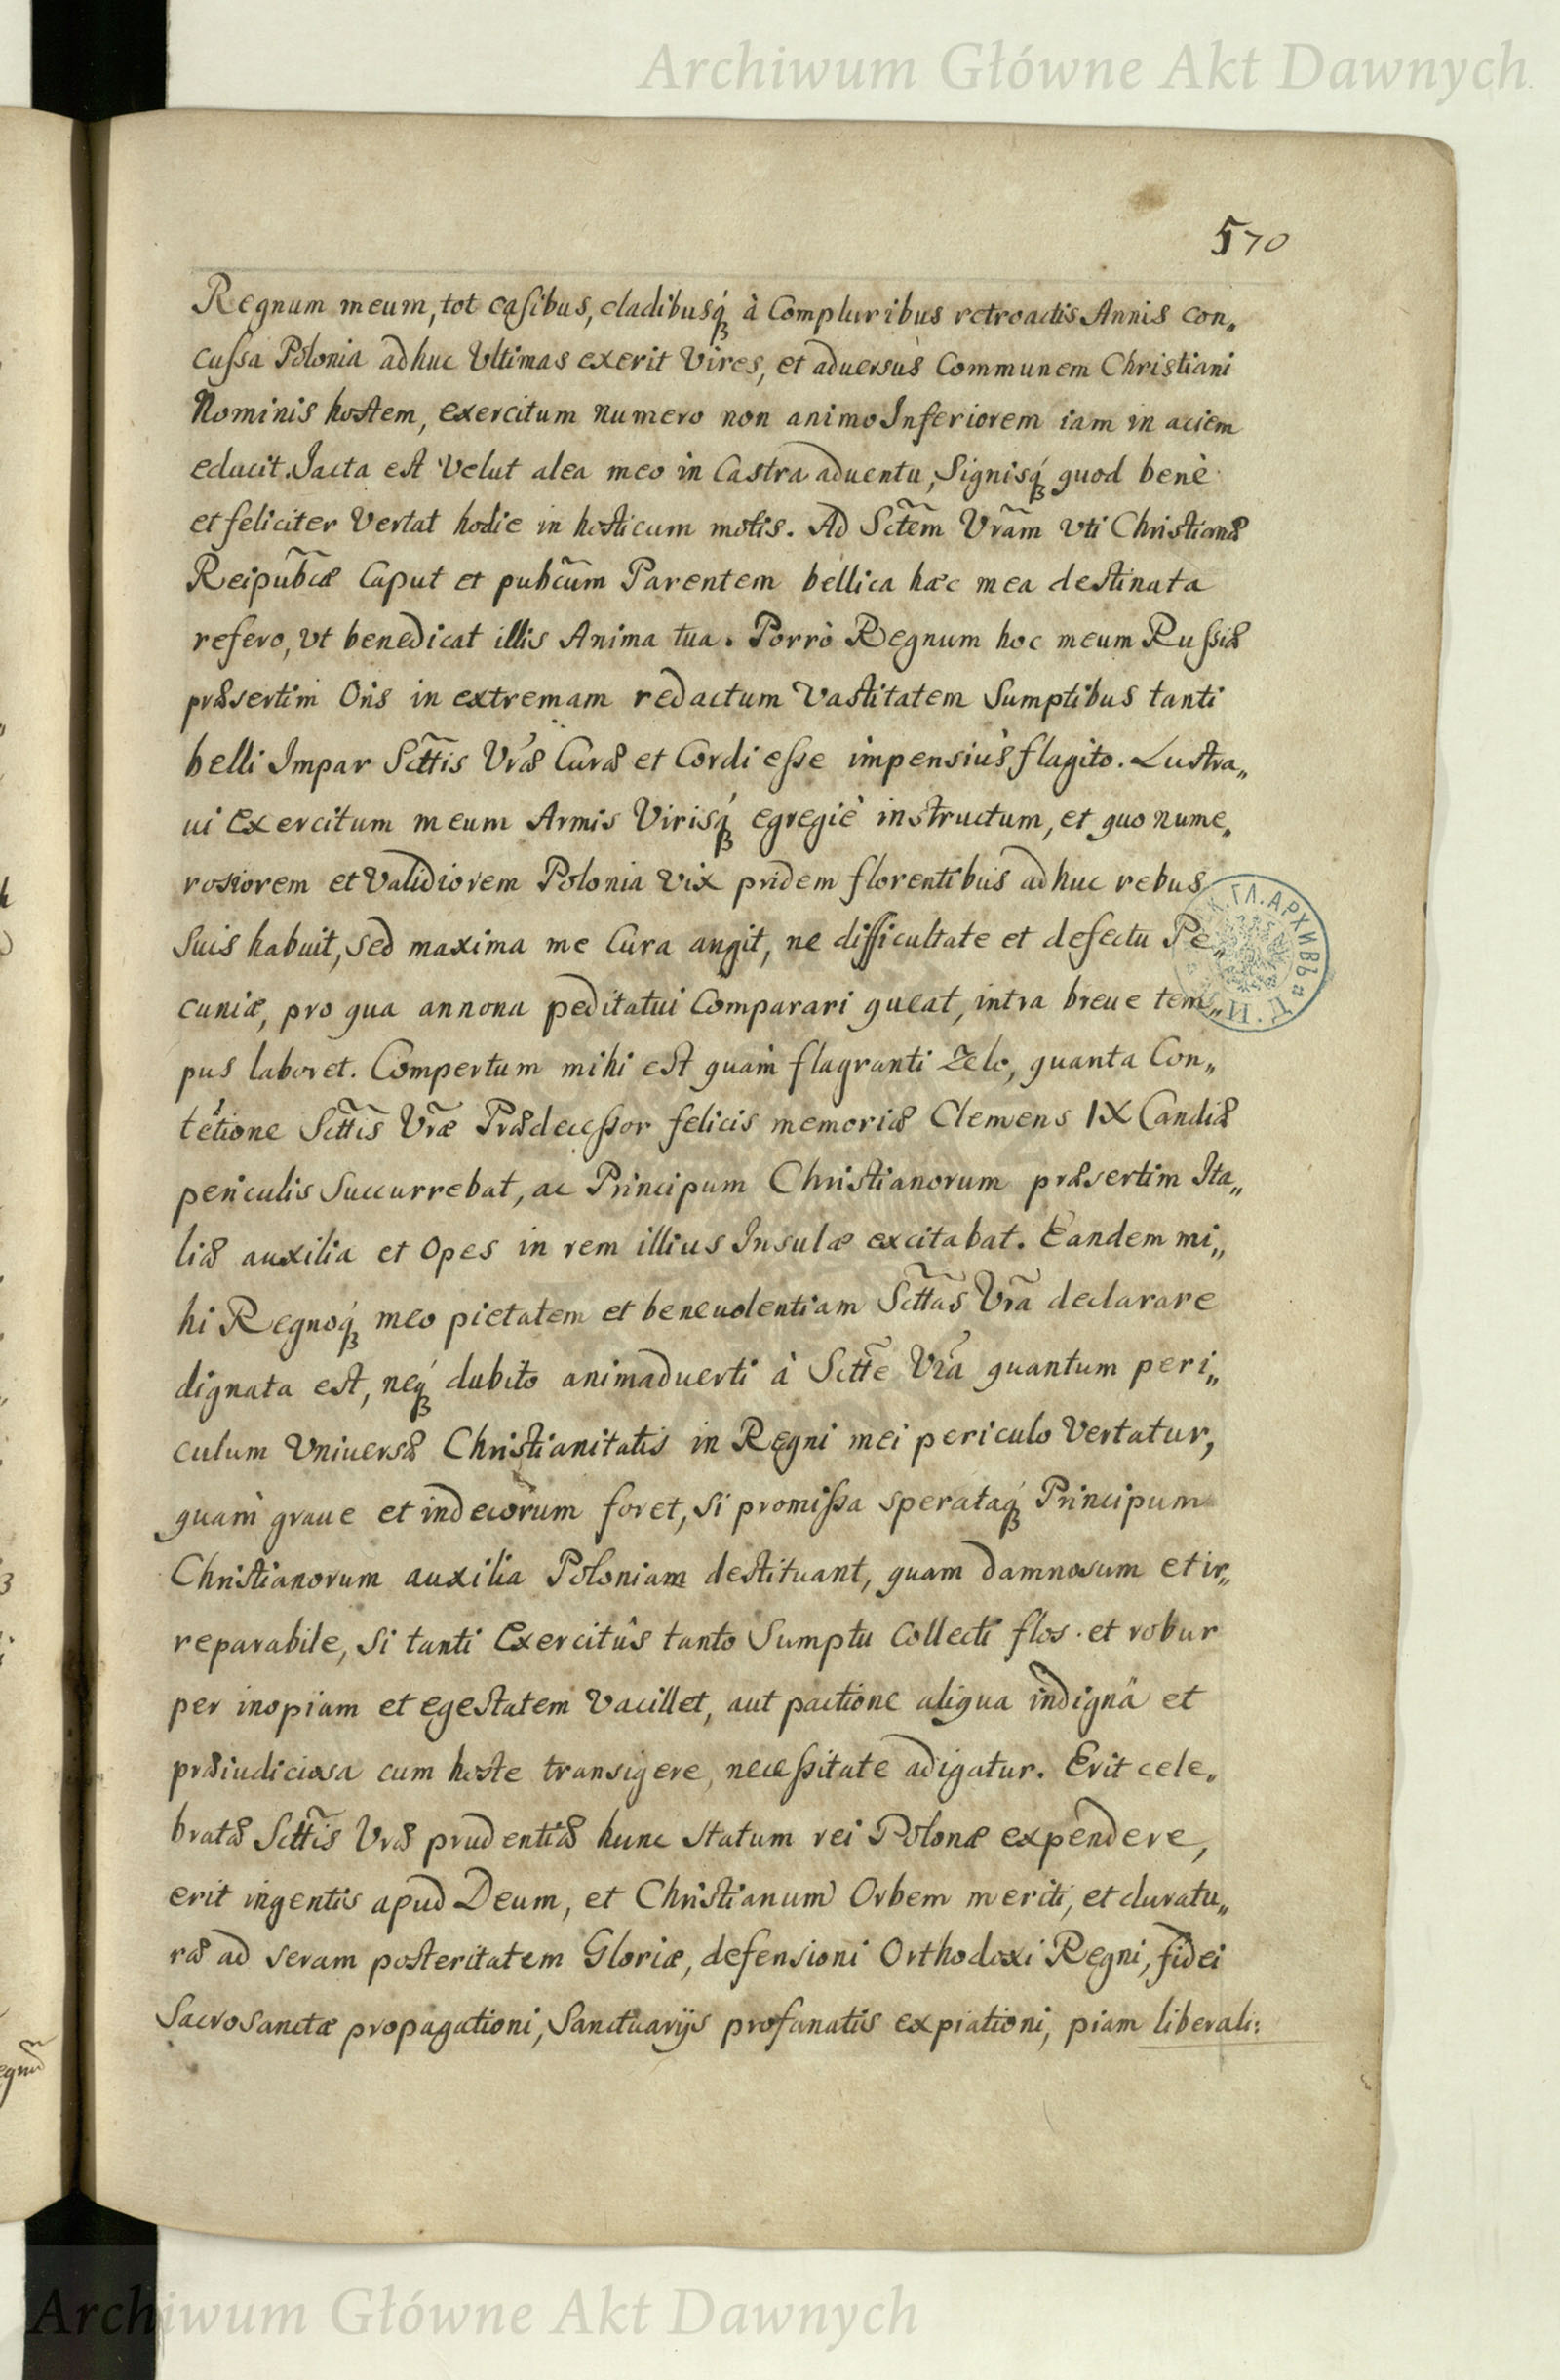 Archiwum Główne Akt Dawnych
570
Regnum meum, tot casibus, cladibusq́ꝫ à Compluribus retroactis Annis con„
cussa Polonia adhuc Ultimas exerit Vires, et aduersùs Communem Christiani
Nominis hostem, exercitum numero non animo Inferiorem iam in aciem
educit. Jacta est Velut alea meo in Castra aduentu, Signisq́ꝫ quod benè
et feliciter Vertat hodie in hosticum motis. Ad Sctem̃ Vram̃ uti Christianæ
Reipub̃cæ Caput et pubc̃um Parentem bellica hæc mea destinata
refero, ut benedicat illis Anima tua. Porrò Regnum hoc meum Russiæ
præsertim Oris in extremam redactum Vastitatem Sumptibus tanti
belli Impar Scttis̃ Vræ̃ Curæ et Cordi esse impensiùs flagito. Lustra„
ui Exercitum meum Armis Virisq́ꝫ egregiè instructum, et quo nume„
rosiorem et Validiorem Polonia Vix pridem florentibus adhuc rebus
Suis habuit, Sed maxima me Cura angit, ne difficultate et defectu Pe„
cuniæ, pro qua annona peditatui Comparari queat, intra breue tem„
pus laboret. Compertum mihi est quàm flagranti Zelo, quanta Con„
tẽtione Scttis̃ Vræ̃ Prædecessor felicis memoriæ Clemens IX Candiæ
periculis Succurrebat, ac Principum Christianorum præsertim Ita„
liæ auxilia et Opes in rem illius Insulæ excitabat. Eandem mi„
hi Regnoq́ꝫ meo pietatem et beneuolentiam Scttas̃ Vrã declarare
dignata est, neq́ꝫ dubito animaduerti à Scttẽ Vrã quantum peri„
culum Vniuersæ Christianitatis in Regni mei periculo Vertatur,
quàm graue et indecòrum foret, Si promissa sperataq́ꝫ Principum
Christianorum auxilia Poloniam destituant, quam damnosum et ir„
reparabile, Si tanti Exercitûs tanto Sumptu Collecti flos et robur
per inopiam et egestatem Vacillet, aut pactione aliqua indignä et
præiudiciosa cum hoste transigere necessitate adigatur. Erit cele„
bratæ Scttis̃ Vræ prudentiæ hunc Statum rei Polonæ expendere,
erit ingentis apud Deum, et Christianum Orbem meriti, et duratu„
ræ ad seram posteritatem Gloriæ, defensioni Orthodoxi Regni, fidei
Sacrosanctæ propagationi, Sanctuarijs profanatis expiationi, piam liberali:
Archiwum Główne Akt Dawnych